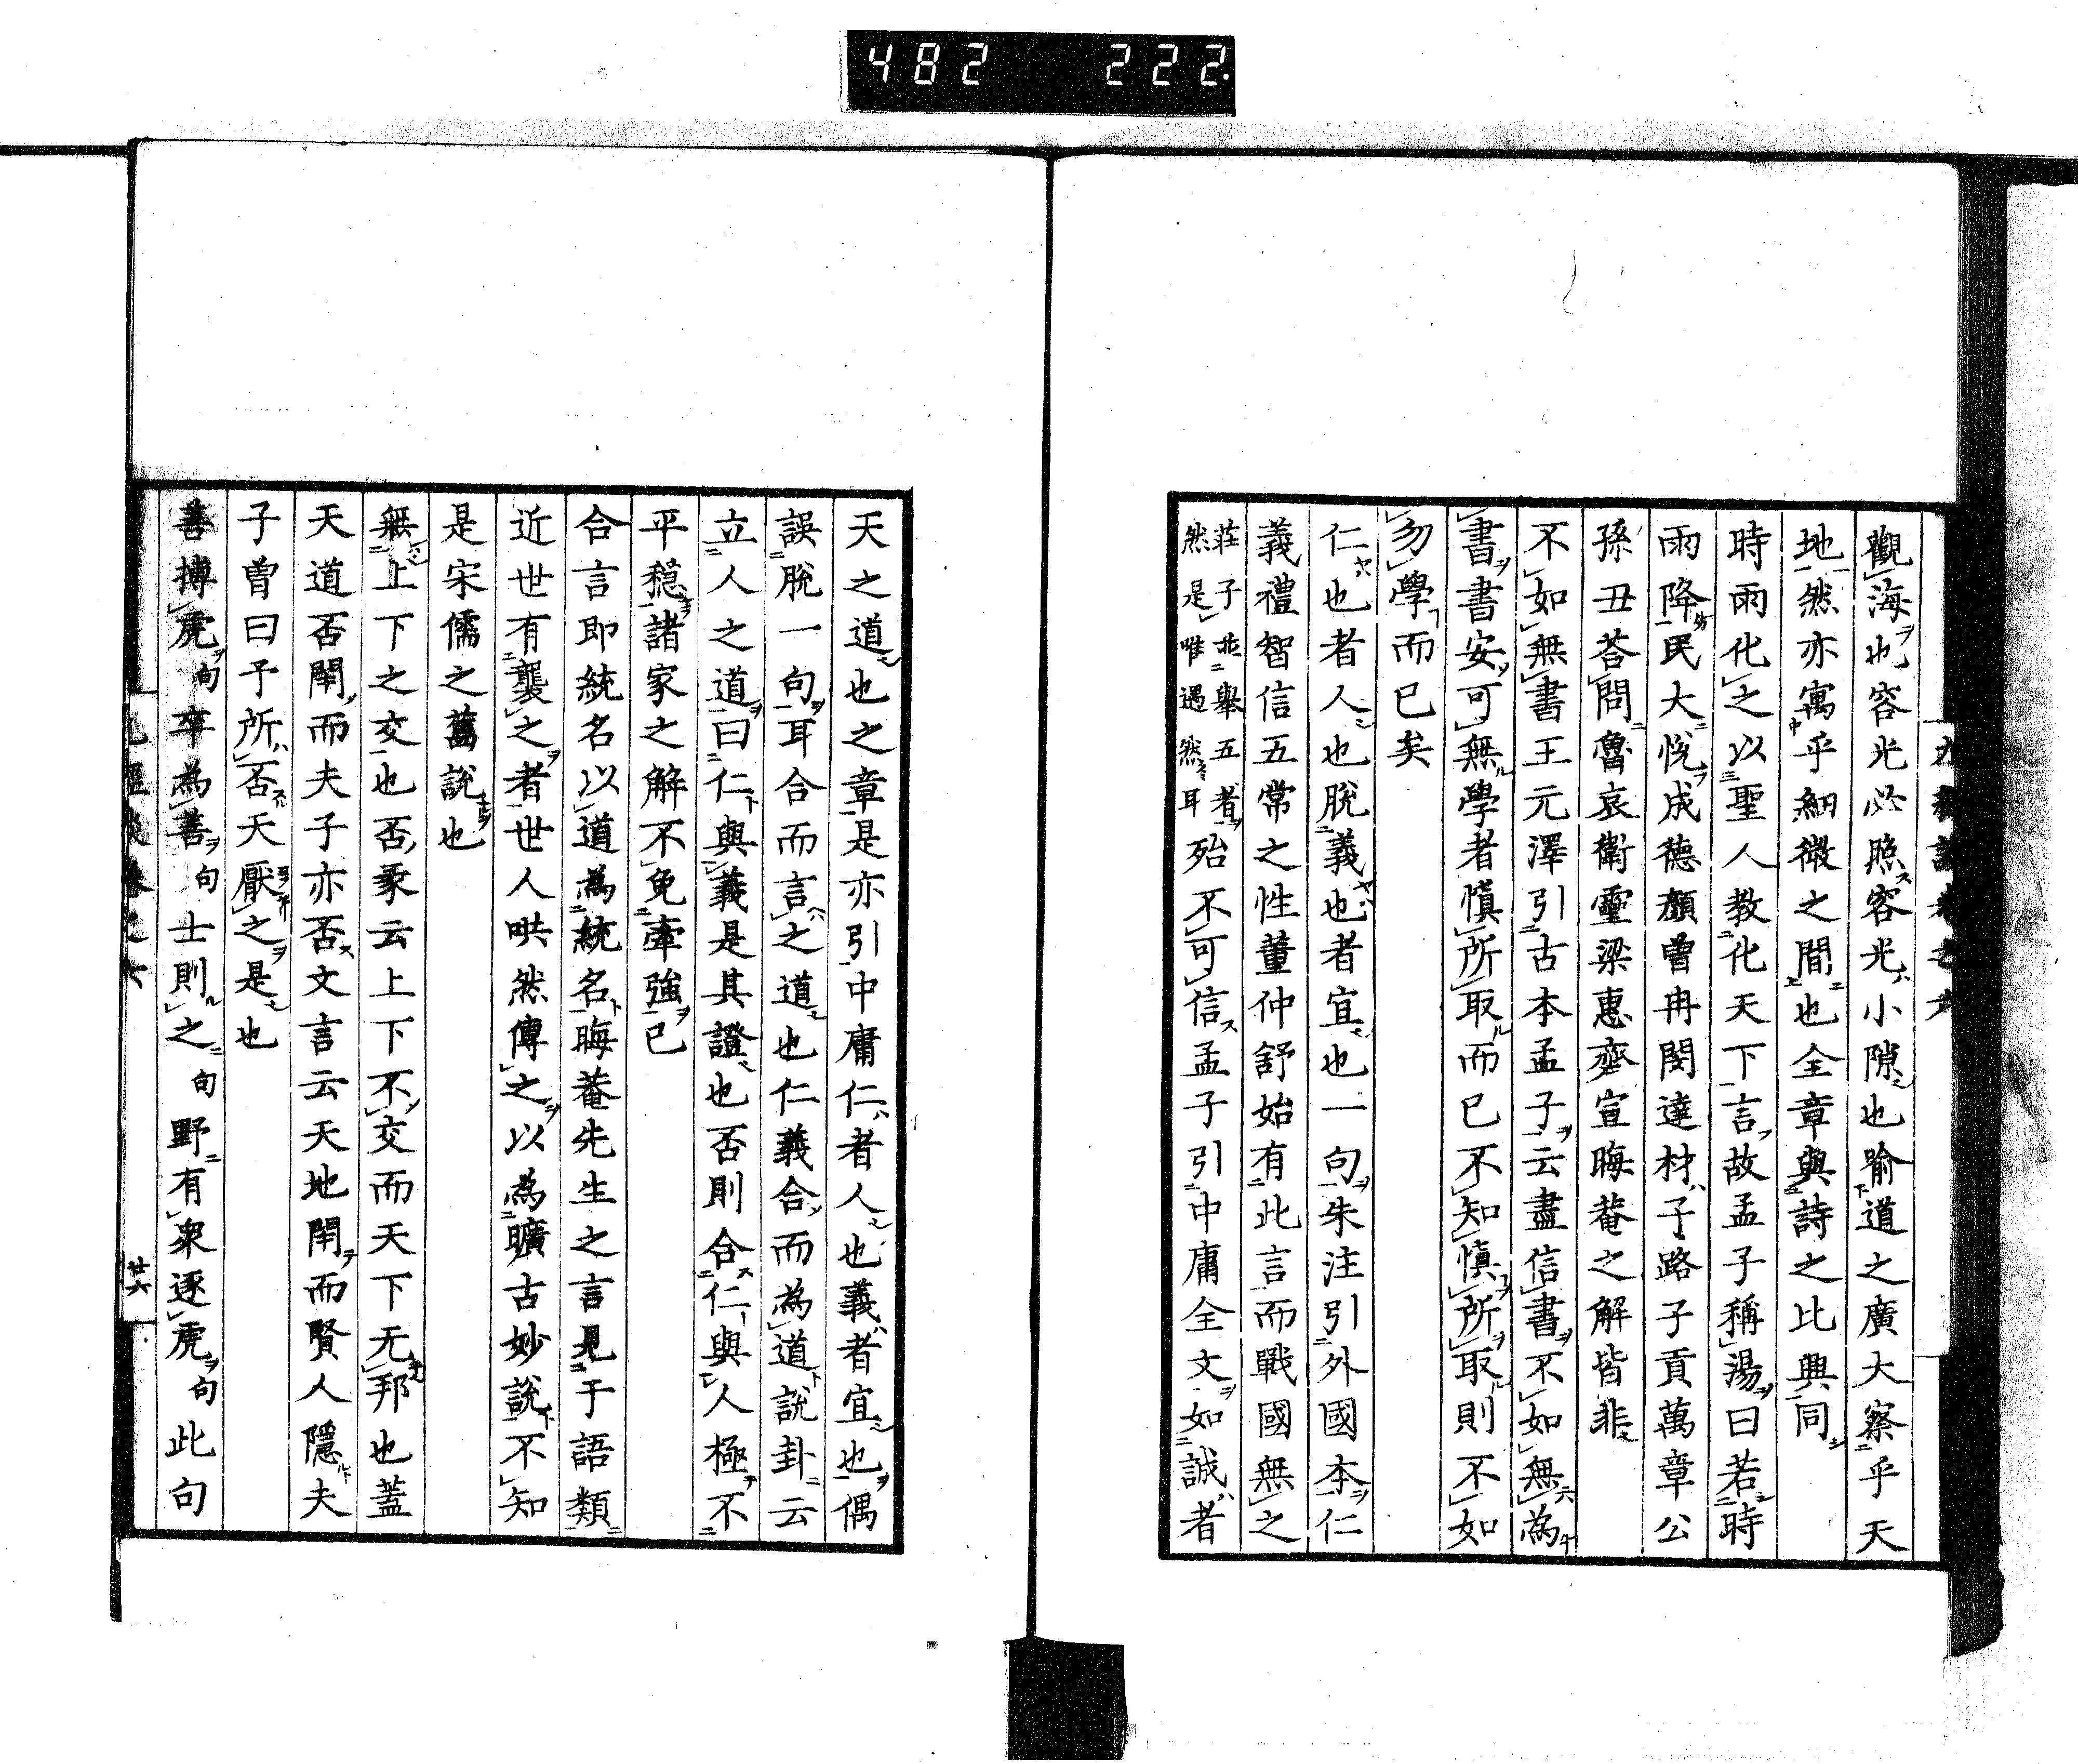 482 222.
觀海也容光必照容光小隙也喻道之廣大察乎天
地然亦寓乎細微之間也全章與詩之比興同
時雨化之以聖人教化天下言故孟子稱湯曰若時
雨降民大悅成德顏曾冉閔達材子路子貢萬章公
孫丑荅問魯哀衛靈梁惠齊宣晦菴之解皆非
不如無書王元澤引古本孟子云盡信書不如無為
書書安可無學者慎所取而已不知慎所取則不如
勿學而已矣
仁也者人也脫義也者宜也一句朱注引外國本仁
義禮智信五常之性董仲舒始有此言而戰國無之
莊子並舉五者
然是唯遇然耳
殆不可信孟子引中庸全文如誠者
天之道也之章是亦引中庸仁者人也義者宜也偶
誤脫一句耳合而言之道也仁義合而為道說卦云
立人之道曰仁與義是其證也否則合仁與人極不
平穩諸家之解不免牽強已
合言即統名以道為統名晦菴先生之言見于語類
近世有襲之者世人哄然傳之以為曠古妙說不知
是宋儒之舊說也
無上下之交也否彖云上下不交而天下无邦也蓋
天道否閉而夫子亦否文言云天地閉而賢人隱夫
子曾曰予所否天厭之是也
善搏虎句卒為善句士則之句野有衆逐虎句此句
廿六